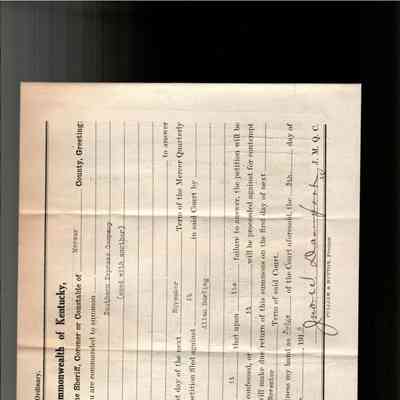 Ordinary.
mmonwealth of Kentucky,
e Sheriff, Coroner or Constable of Mercer County, Greeting:
u are commanded to summon
Southern Express Company
(sued with another)
to answer
t day of the next November Term of the Mercer Quarterly
etition filed against it in said Court by
Allen Darling
it that upon its failure to answer, the petition will be
confessed, or it will be proceeded against for contempt
will make due return of this summons on the first day of next
November Term of said Court.
ness my hand as Judge of the Court aforesaid, the 9th day of
, 191
J. M. Q. C.